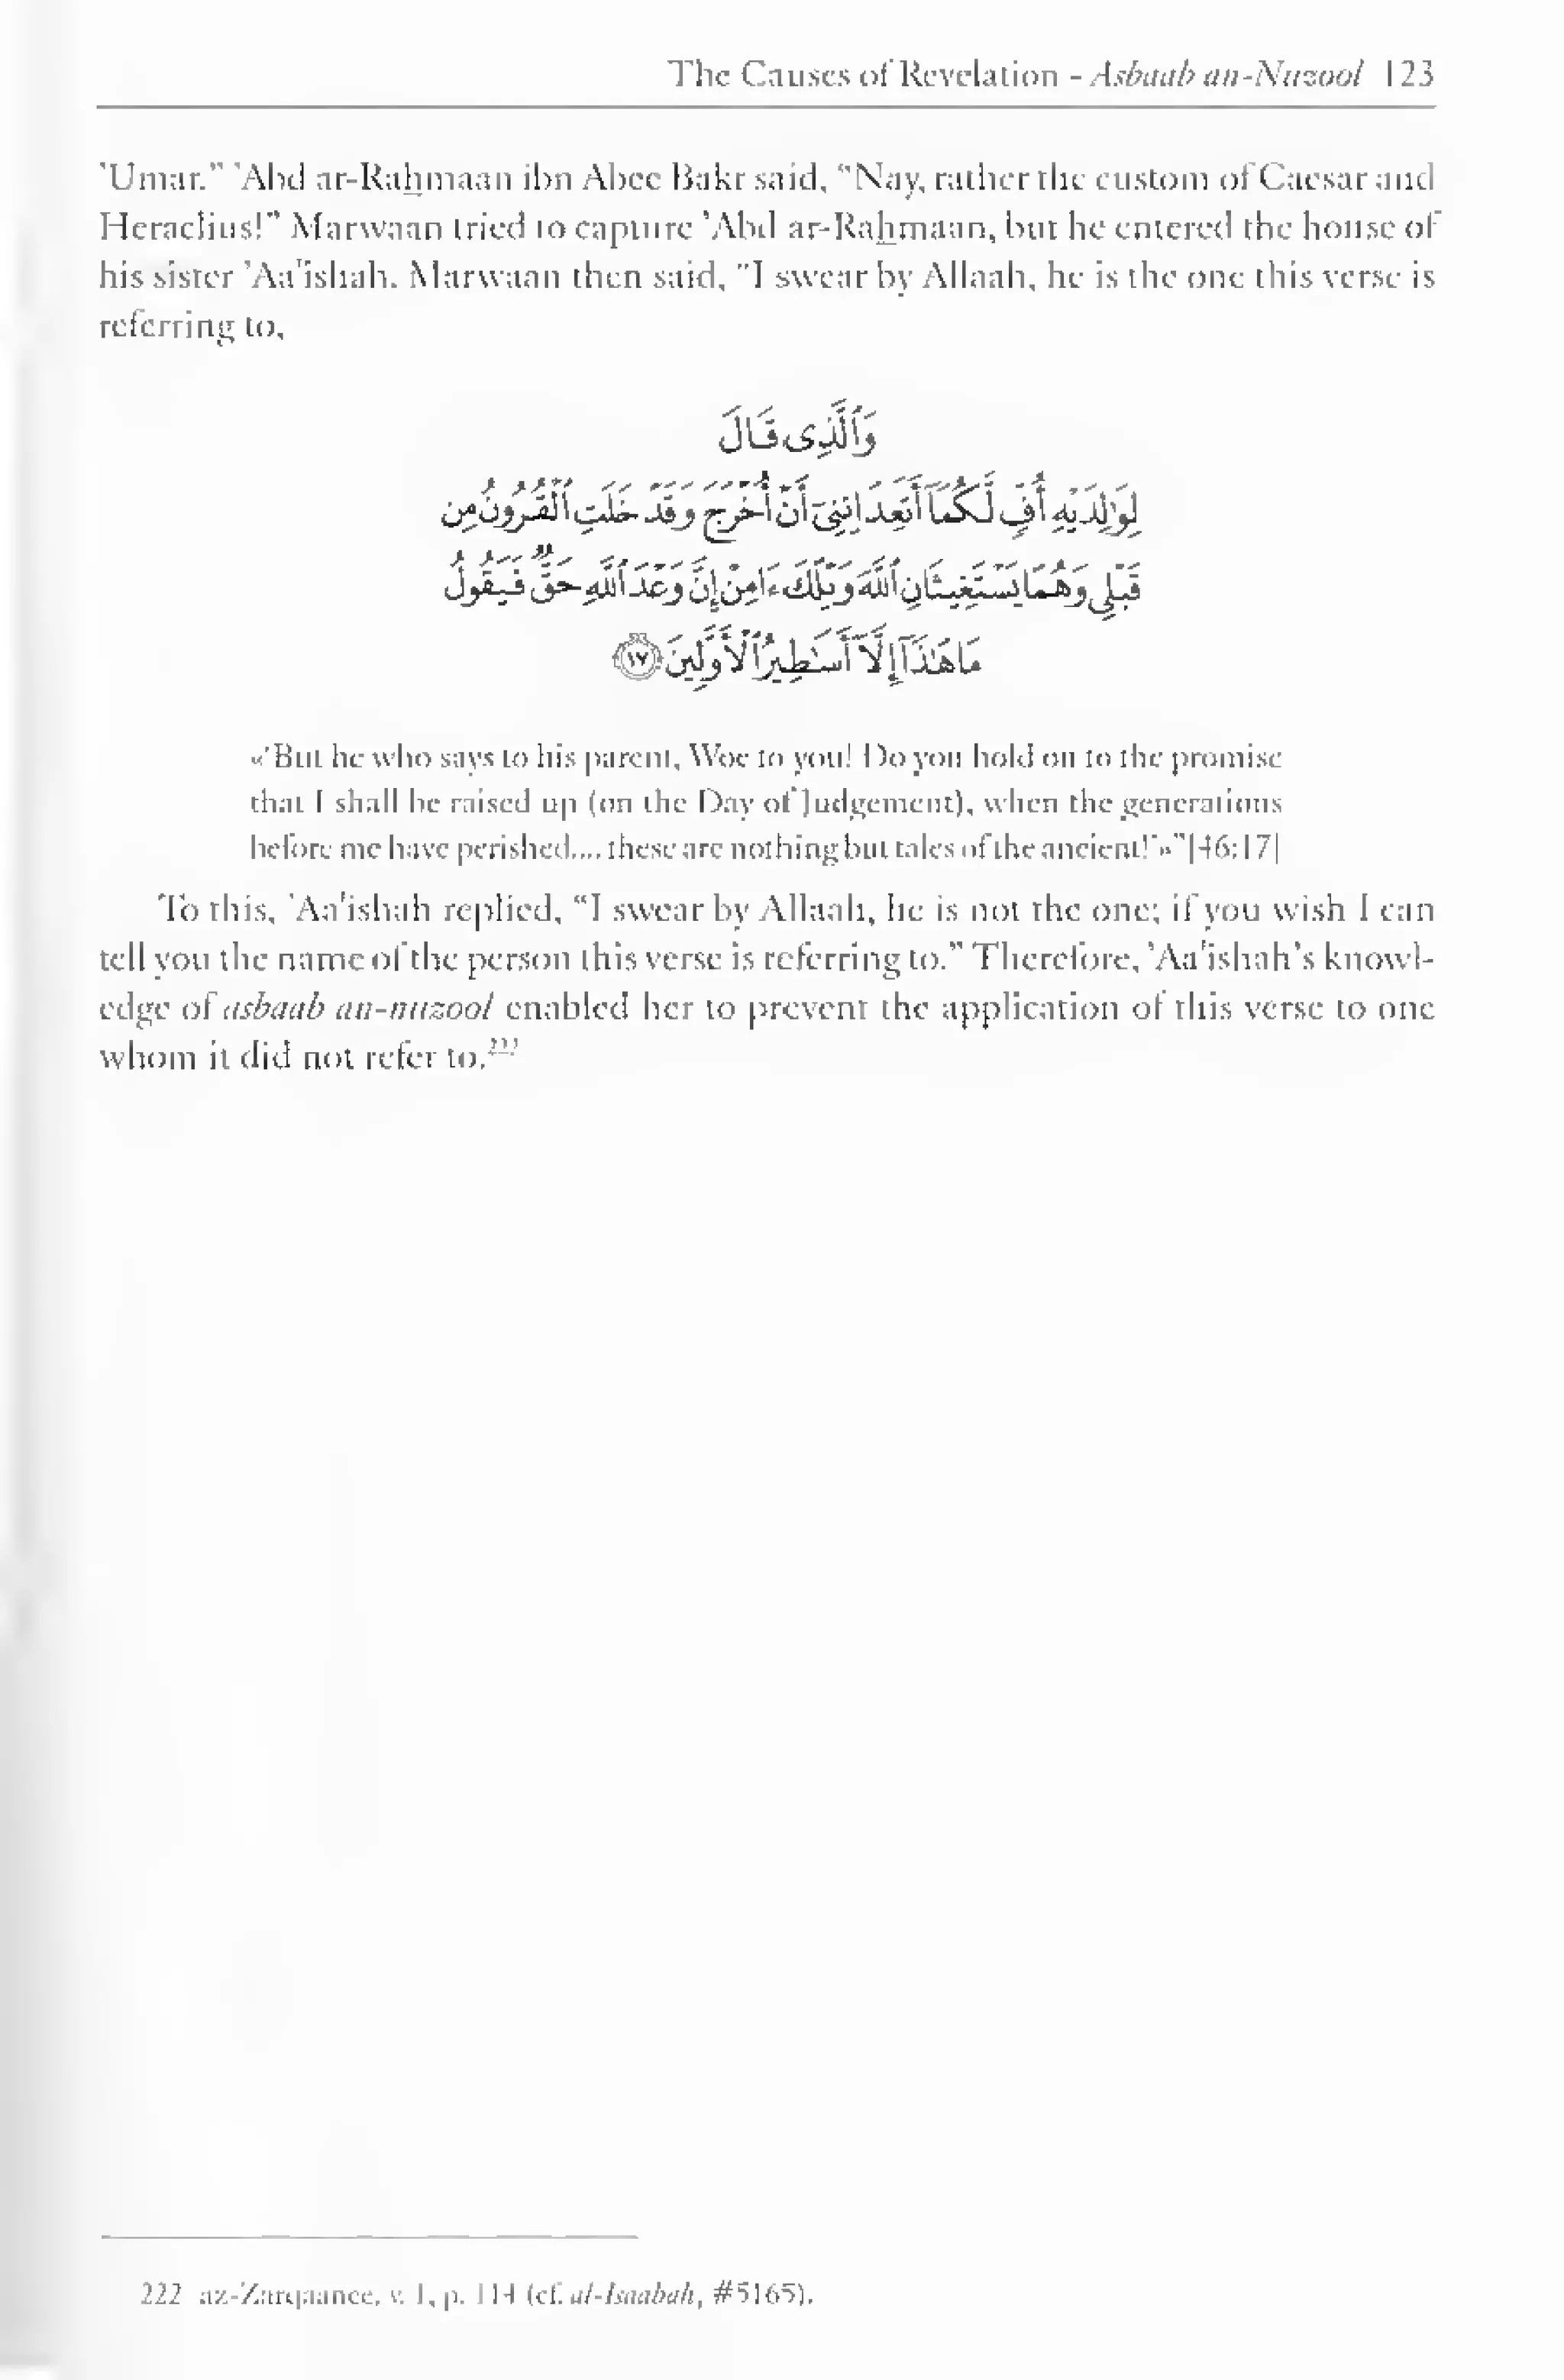 The Causes of Revelation - Asbaab an-Nuzool 123
'Umar." 'Abd ar-Raḥmaan ibn Abee Bakr said, "Nay, rather the custom of Caesar and
Heraclius!" Marwaan tried to capture 'Abd ar-Raḥmaan, but he entered the house of
his sister 'Aa'ishah. Marwaan then said, "I swear by Allaah, he is the one this verse is
referring to,
وَٱلَّذِى قَالَ
لِوَٰلِدَيْهِ أُفٍّ لَّكُمَآ أَتَعِدَانِنِىٓ أَنْ أُخْرَجَ وَقَدْ خَلَتِ ٱلْقُرُونُ مِن
قَبْلِى وَهُمَا يَسْتَغِيثَانِ ٱللَّهَ وَيْلَكَ ءَامِنْ إِنَّ وَعْدَ ٱللَّهِ حَقٌّ فَيَقُولُ
مَا هَٰذَآ إِلَّآ أَسَٰطِيرُ ٱلْأَوَّلِينَ ١٧
«'But he who says to his parent, Woe to you! Do you hold on to the promise
that I shall be raised up (on the Day of Judgement), when the generations
before me have perished.... these are nothing but tales of the ancient!'»"[46:17]
To this, 'Aa'ishah replied, "I swear by Allaah, he is not the one; if you wish I can
tell you the name of the person this verse is referring to." Therefore, 'Aa'ishah's knowl-
edge of asbaab an-nuzool enabled her to prevent the application of this verse to one
whom it did not refer to.222
222 az-Zarqaanee, v. 1, p. 114 (cf. al-Isaabah, #5165).